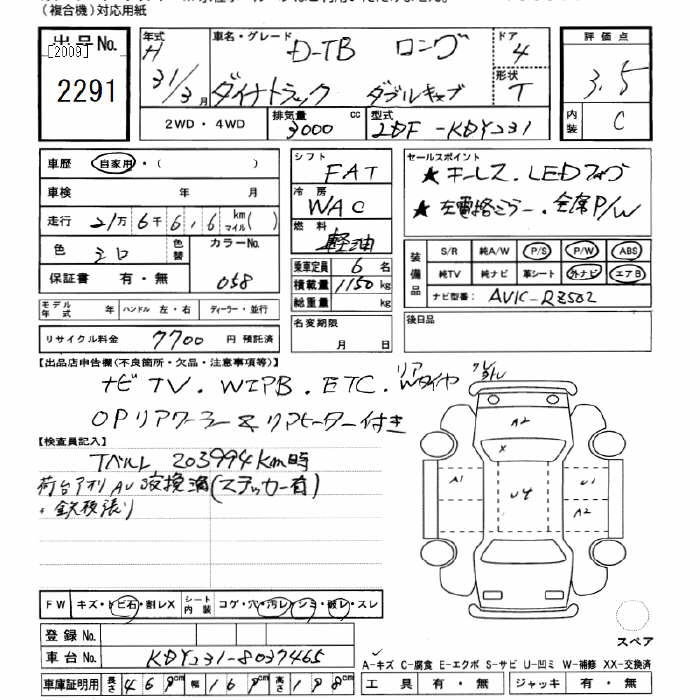 (複合機)対応用紙
出品No.
[2009]
2291
年式 H 31/3 月
車名・グレード D-TB ロング
ダイナトラック ダブルキャブ
ドア 4
形状 T
2WD・4WD
排気量 3000 cc
型式 2DF-KDY231
評価点 3.5
内装 C
車歴 自家用・( )
車検 年 月
走行 21万 6千 6.6 km マイル( )
色 シロ 色替
カラーNo. 058
保証書 有・無
モデル年式 年 ハンドル 左・右 ディーラー・並行
リサイクル料金 7700 円 預託済
シフト FAT
冷房 WAC
燃料 軽油
乗車定員 6 名
積載量 1150 kg
総重量 kg
名変期限
月 日
セールスポイント
★キーレス.LEDフォグ
★左電格ミラー.全席P/W
装備品
S/R 純A/W P/S P/W ABS
純TV 純ナビ 革シート 外ナビ エアB
ナビ型番: AVIC-RZ502
後日品
【出品店申告欄(不良箇所・欠品・注意事項等)】
ナビTV.WIPB.ETC.リアWタイヤ
OPリアクーラー&リアヒーター付き
【検査員記入】
Tベルト 203994km時
荷台アオリ 交換済(ステッカー有)
+鉄板張り
A2
X
A1
U4
U1
A2
FW キズ・トビ石・割レX
シート内装 コゲ・穴・汚レ・シミ・破レ・スレ
登録No.
車台No. KDY231-8037465
車庫証明用 長さ 469cm 幅 169cm 高さ 198cm
スペア
A-キズ C-腐食 E-エクボ S-サビ U-凹ミ W-補修 XX-交換済
工具 有・無 ジャッキ 有・無